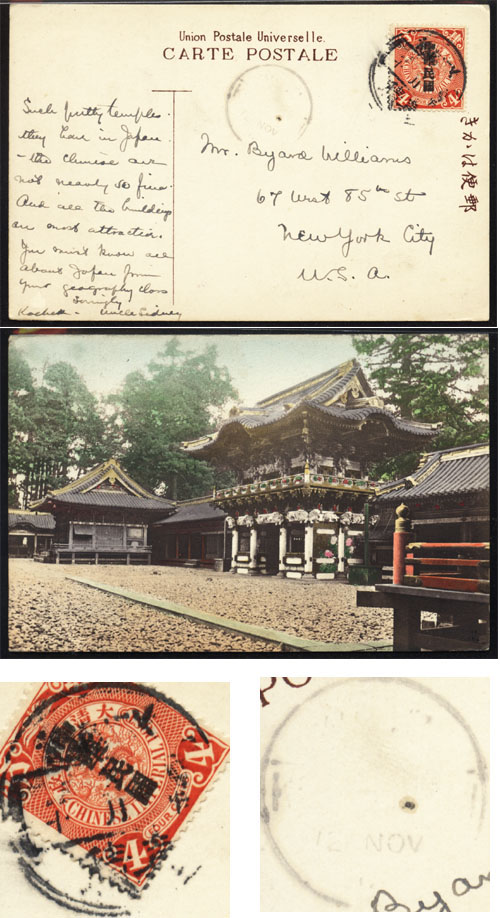 Union Postale Universelle.
CARTE POSTALE
NOV
Such pretty temples
they have in Japan
- the Chinese are
not nearly so fine.
And all the buildings
are most attractive.
You must know all
about Japan from
your geography class
Lovingly
Uncle Sidney
Mr. Byard Williams
67 West 85th St
New York City
U.S.A.
きかは便郵
大清
CHINESE IMPERIAL
4
4
FOUR
PO
12 NOV
Byar